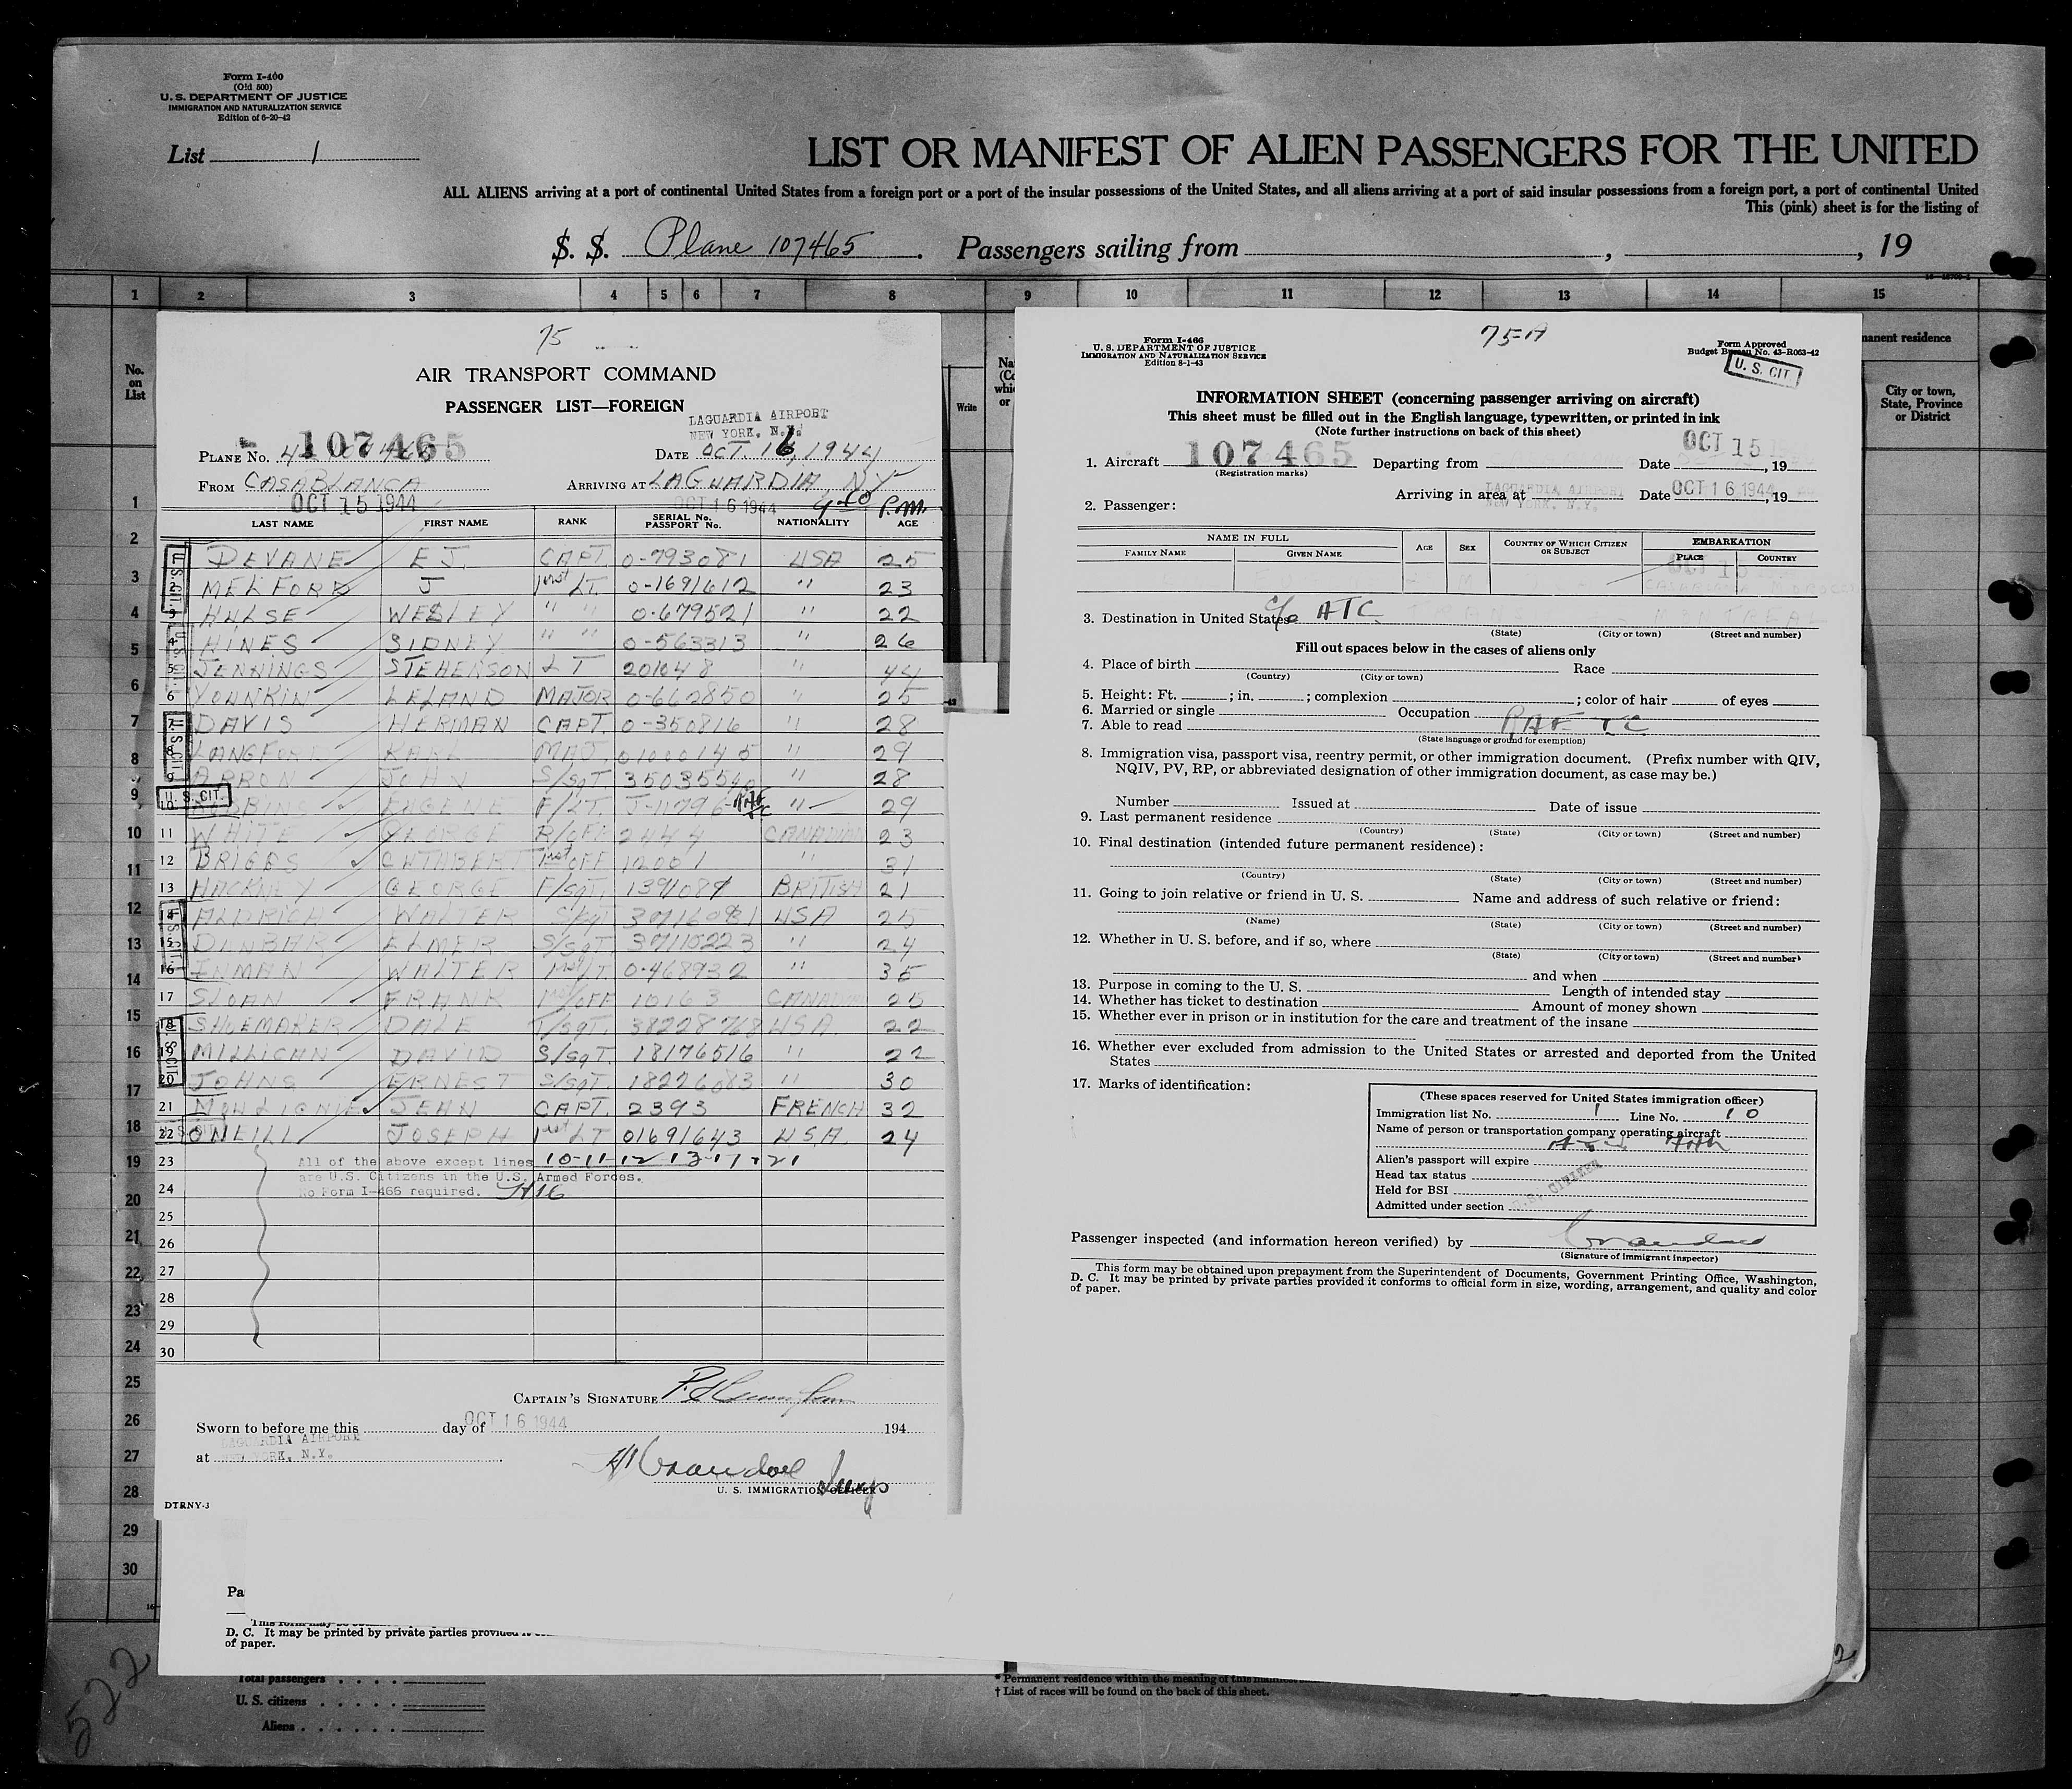 Form I-400
(Old 500)
U. S. DEPARTMENT OF JUSTICE
IMMIGRATION AND NATURALIZATION SERVICE
Edition of 6-20-42
List 1
LIST OR MANIFEST OF ALIEN PASSENGERS FOR THE UNITED
ALL ALIENS arriving at a port of continental United States from a foreign port or a port of the insular possessions of the United States, and all aliens arriving at a port of said insular possessions from a foreign port, a port of continental United
This (pink) sheet is for the listing of
S. S. Plane 107465. Passengers sailing from , , 19
1 2 3 4 5 6 7 8 9 10 11 12 13 14 15
No. on List
Write
manent residence
City or town, State, Province or District
75
AIR TRANSPORT COMMAND
PASSENGER LIST—FOREIGN
LAGUARDIA AIRPORT
NEW YORK, N.Y.
PLANE NO. 107465 DATE OCT. 16, 1944
FROM CASABLANCA ARRIVING AT LAGUARDIA, NY
OCT 15 1944 OCT 16 1944 4 40 P.M.
LAST NAME FIRST NAME RANK SERIAL No. PASSPORT No. NATIONALITY AGE
DEVANE E J. CAPT 0-793081 USA 25
2 MELFORD J 1st LT. 0-1691612 " 23
3 HULSE WESLEY " " 0-679521 " 22
4 HINES SIDNEY " " 0-563313 " 26
5 JENNINGS STEHENSON LT 201048 " 44
6 YOUNKIN LELAND MAJOR 0-662850 " 25
7 DAVIS HERMAN CAPT. 0-350816 " 28
8 LANGFORD KARL MAJ. " 29
9 ARRON JOHN S/SGT. " 28
U. S. CIT.
10 EUGENE F/LT. J-11796 RAF TC " 29
11 WHITE GEORGE R/OFF 2444 CANADIAN 23
12 BRIGGS CUTHBERT 1st OFF 12001 " 31
13 HACKNEY GEORGE F/SGT. 1391087 BRITISH 21
14 ALDRICH WALTER S/SGT 37116081 USA 25
15 DUNBAR ELMER S/SGT 37110223 " 24
16 INMAN WALTER 1st LT 0-468932 " 35
17 SLOAN FRANK 1st/OFF 10163 CANADIAN 25
18 SHOEMAKER DALE T/SGT. 38228768 USA 22
19 MILLICAN DAVID S/SGT. 18176516 " 22
20 JOHNS ERNEST S/SGT. 18226083 " 30
21 MOULIGNIE JEAN CAPT. 2393 FRENCH 32
22 ONEILL JOSEPH 1st LT 01691643 USA 24
23 All of the above except lines 10-11-12-13-17-21
are U.S. Citizens in the U.S. Armed Forces.
24 No Form I-466 required.
25
26
27
28
29
30
CAPTAIN'S SIGNATURE
Sworn to before me this day of OCT 16 1944 194
LAGUARDIA AIRPORT
at NEW YORK, N.Y.
H Crandall Insp
U. S. IMMIGRATION OFFICER
DTRNY-3
75-A
Form I-466
U. S. DEPARTMENT OF JUSTICE
IMMIGRATION AND NATURALIZATION SERVICE
Edition 8-1-43
Form Approved
Budget Bureau No. 43-R063-42
U. S. CIT
INFORMATION SHEET (concerning passenger arriving on aircraft)
This sheet must be filled out in the English language, typewritten, or printed in ink
(Note further instructions on back of this sheet)
1. Aircraft 107465 Departing from Date OCT 15, 19
(Registration marks)
Arriving in area at LAGUARDIA AIRPORT NEW YORK, N.Y. Date OCT 16 1944, 19
2. Passenger:
NAME IN FULL AGE SEX COUNTRY OF WHICH CITIZEN OR SUBJECT EMBARKATION
FAMILY NAME GIVEN NAME PLACE COUNTRY
OCT 15
3. Destination in United States c/o ATC
(State) (City or town) (Street and number)
Fill out spaces below in the cases of aliens only
4. Place of birth Race
(Country) (City or town)
5. Height: Ft. ; in. ; complexion ; color of hair of eyes
6. Married or single Occupation RAF TC
7. Able to read
(State language or ground for exemption)
8. Immigration visa, passport visa, reentry permit, or other immigration document. (Prefix number with QIV,
NQIV, PV, RP, or abbreviated designation of other immigration document, as case may be.)
Number Issued at Date of issue
9. Last permanent residence
(Country) (State) (City or town) (Street and number)
10. Final destination (intended future permanent residence):
(Country) (State) (City or town) (Street and number)
11. Going to join relative or friend in U. S. Name and address of such relative or friend:
(Name) (State) (City or town) (Street and number)
12. Whether in U. S. before, and if so, where
(State) (City or town) (Street and number)
and when
13. Purpose in coming to the U. S. Length of intended stay
14. Whether has ticket to destination Amount of money shown
15. Whether ever in prison or in institution for the care and treatment of the insane
16. Whether ever excluded from admission to the United States or arrested and deported from the United
States
17. Marks of identification:
(These spaces reserved for United States immigration officer)
Immigration list No. 1 Line No. 10
Name of person or transportation company operating aircraft
Alien's passport will expire
Head tax status
Held for BSI
Admitted under section U.S. CITIZEN
Passenger inspected (and information hereon verified) by Crandall
(Signature of immigrant inspector)
This form may be obtained upon prepayment from the Superintendent of Documents, Government Printing Office, Washington,
D. C. It may be printed by private parties provided it conforms to official form in size, wording, arrangement, and quality and color
of paper.
Pa
D. C. It may be printed by private parties provided
of paper.
Total passengers
U. S. citizens
Aliens
* Permanent residence within the meaning of this
† List of races will be found on the back of this sheet.
522